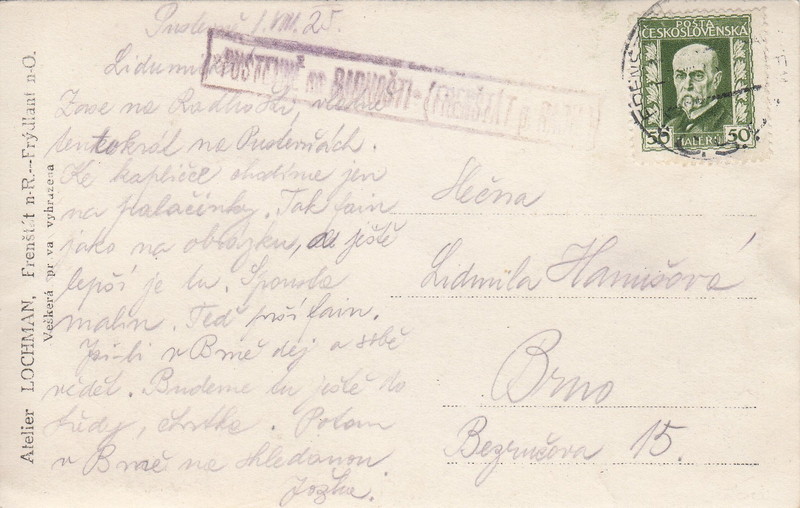 Pustevně 1.VIII.25.
Lidumilko!
Zase na Radhošti, vlastně
tentokrát na Pustevnách.
Ke kapličce chodíme jen
na palačinky. Tak fain
jako na obrázku, ale ještě
lepší je tu. Spousta
malin. Teď prší fain.
Jsi-li v Brně dej o sobě
vědět. Budeme tu ještě do
středy, čtvrtka. Potom
v Brně na shledanou.
Jožka.
PUSTEVNĚ na RADHOŠTI - (FRENŠTÁT p. R.
POŠTA
ČESKOSLOVENSKÁ
50 HALÉŘŮ 50
FRENŠ
Slečna
Lidmila Hanušová
Brno
Bezručova 15.
Atelier LOCHMAN, Frenštát n-R.--Frýdlant n-O.
Veškerá práva vyhrazena